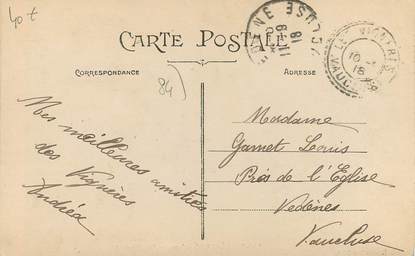 40 €
CARTE POSTALE
CORRESPONDANCE
ADRESSE
84)
Mes meilleures amitiés
des Vignères
Andréa
Madame
Garnet Louis
Près de l'Eglise
Vedènes
Vaucluse
VAUCLUSE